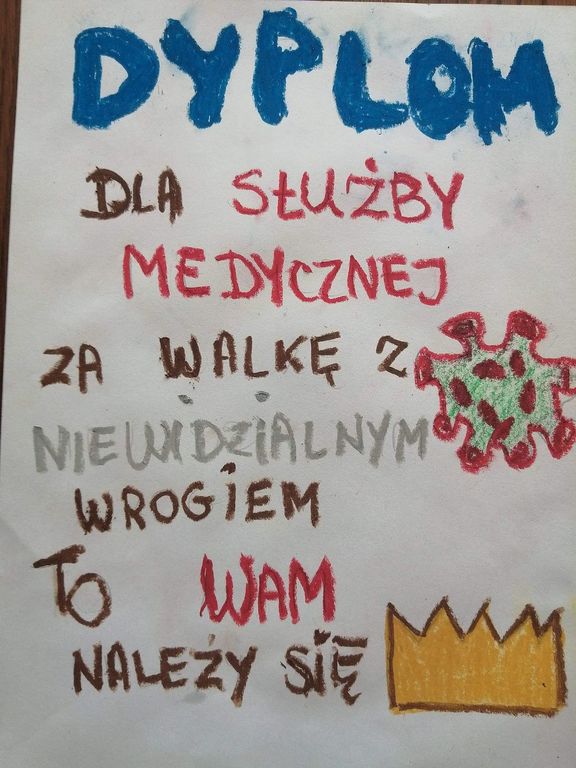 DYPLOM
DLA SŁUŻBY
MEDYCZNEJ
ZA WALKĘ Z
NIEWIDZIALNYM
WROGIEM
TO WAM
NALEŻY SIĘ